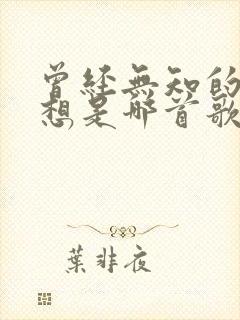 曾經無知的
想是哪首歌
葉非夜